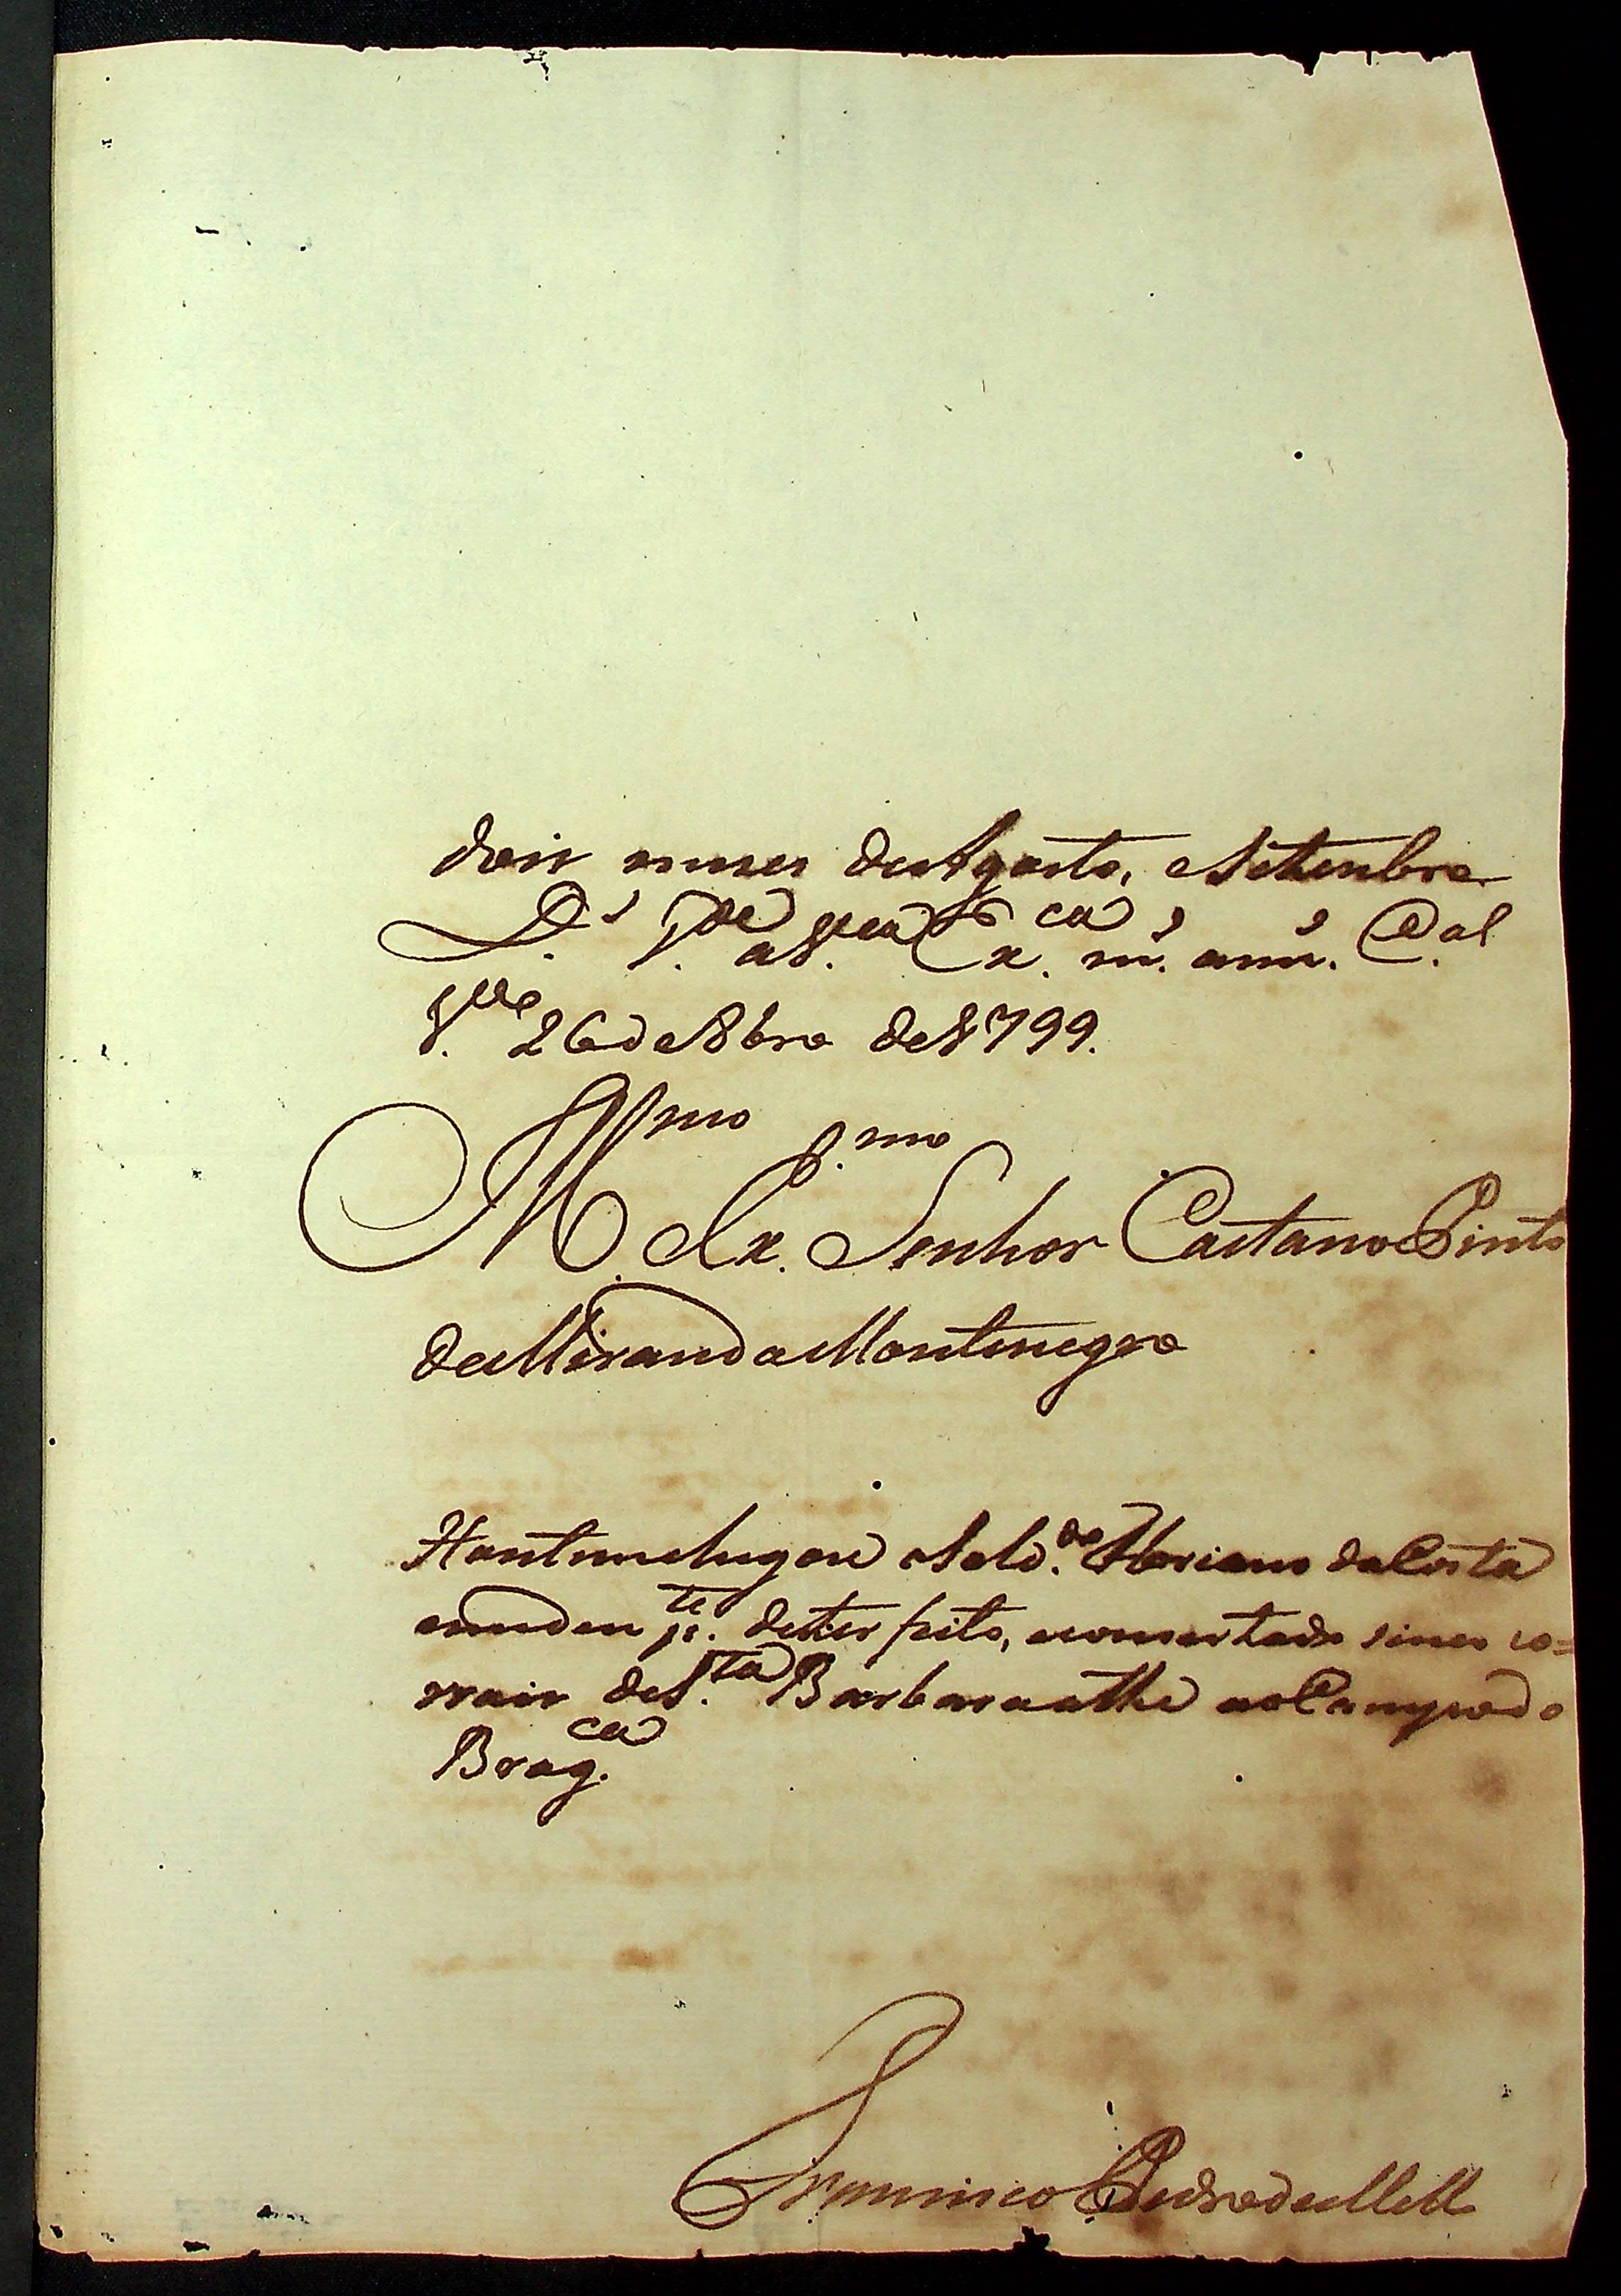 dois mezes de Agosto, e Setembro
D.s g.de a V.ca Ex.ca m.s ann.s Cazal
V.co 26 de 8bro de 1799.
Ill.mo e Ex.mo Senhor Caetano Pinto
de Miranda Montenegro
Hontem chegou o Sold.do Floriano da Costa
e me deu p.te de ter feito, e consertado sinco co=
rrais de S.ta Barbara athe ao Campo do
Brag.ca
Francisco Pedro de Mello